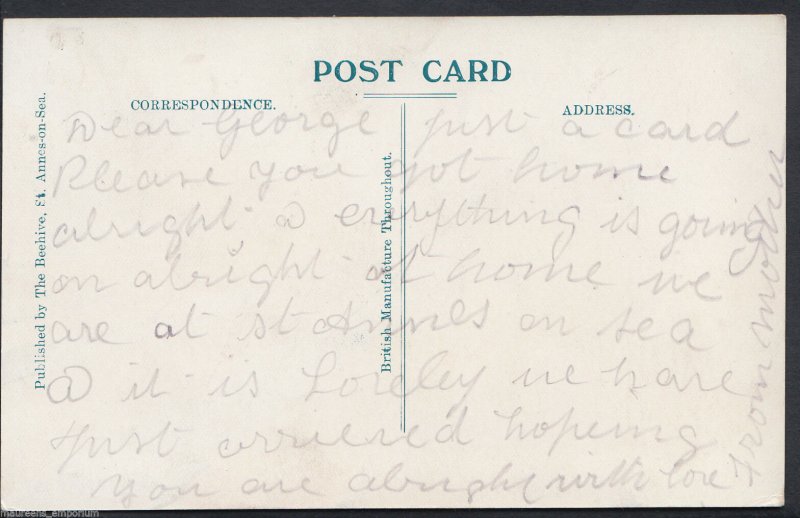 POST CARD
CORRESPONDENCE.
ADDRESS.
Published by The Beehive, St. Annes-on-Sea.
British Manufacture Throughout.
Dear George just a card
Please you got home
alright @ everything is going
on alright at home we
are at st Annes on sea
@ it is Loveley we have
just arrieved hopeing
you are alright with love
From mother
maureens_emporium